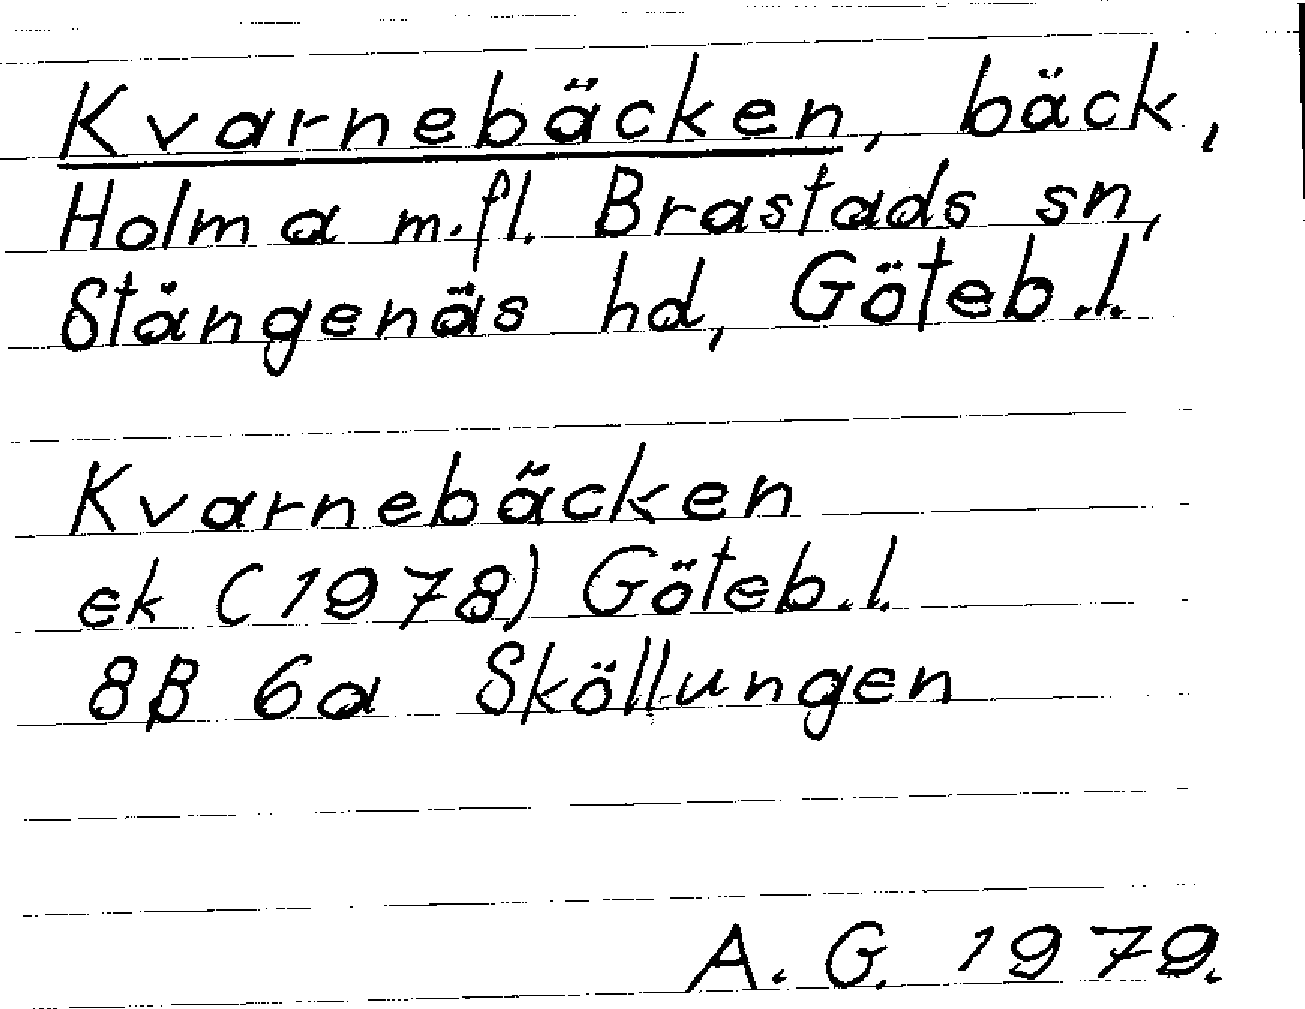 Kvarnebäcken, bäck,
Holma m.fl. Brastads sn,
Stångenäs hd, Göteb.l.
Kvarnebäcken
ek (1978) Göteb.l.
8B 6a Sköllungen
A. G. 1979.